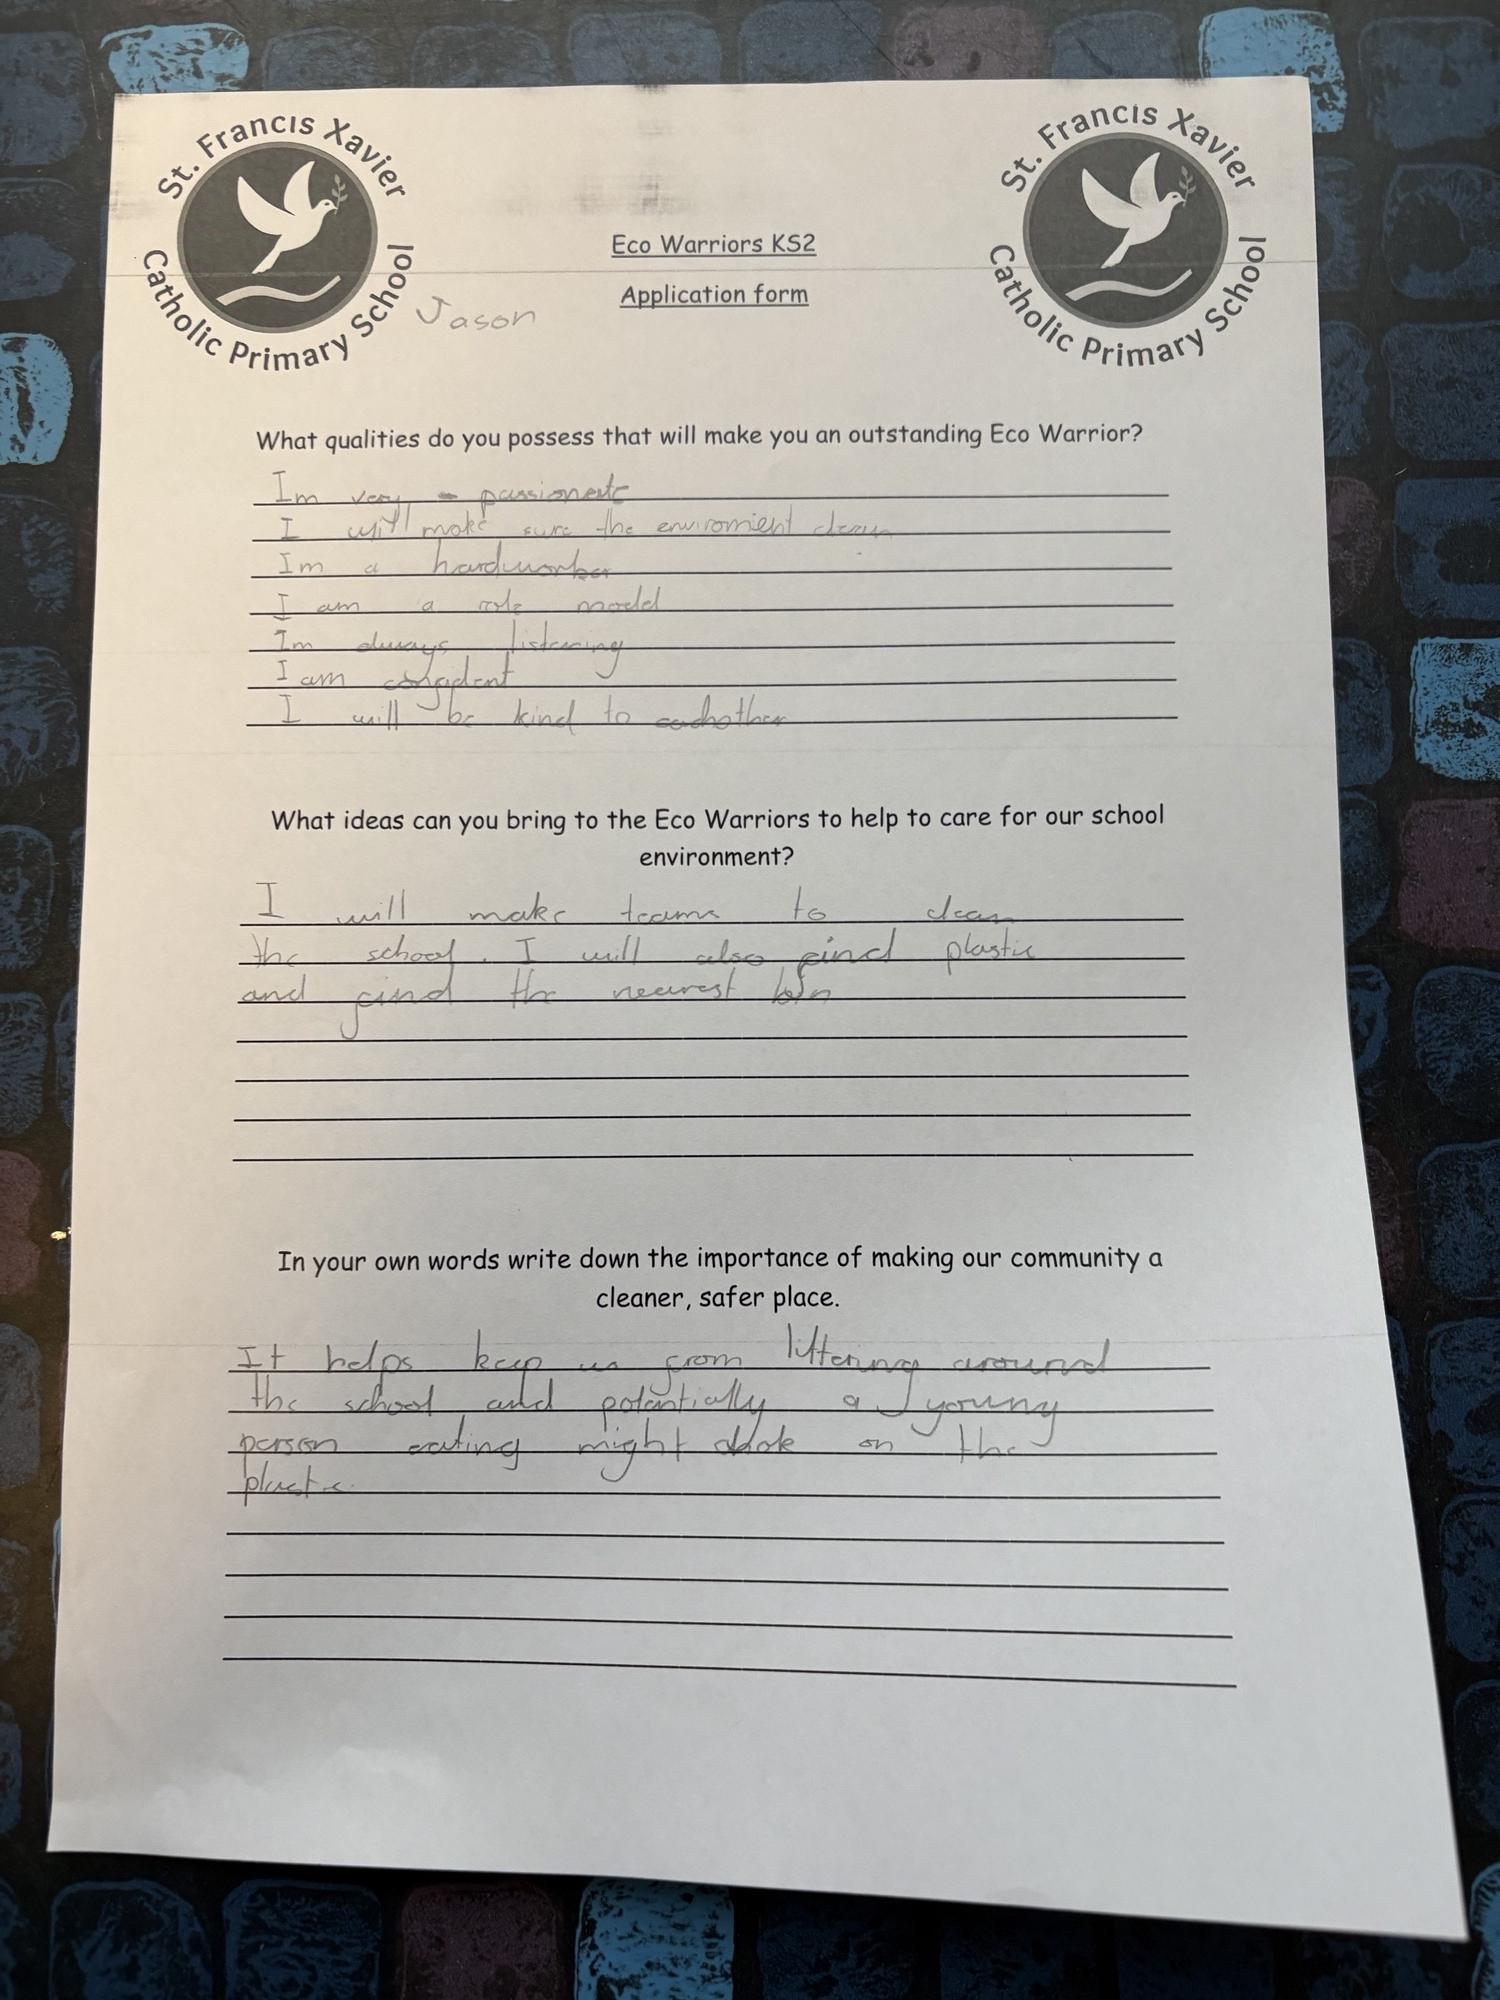 St. Francis Xavier
Catholic Primary School
St. Francis Xavier
Catholic Primary School
Eco Warriors KS2
Application form
Jason
What qualities do you possess that will make you an outstanding Eco Warrior?
Im very passionate
I will make sure the enviroment clean
Im a hardworker
I am a role model
Im always listening
I am confident
I will be kind to eachother
What ideas can you bring to the Eco Warriors to help to care for our school
environment?
I will make teams to clean
the school. I will also find plastic
and find the nearest bin
In your own words write down the importance of making our community a
cleaner, safer place.
It helps keep us from littering around
the school and potantially a young
person eating might chok on the
plastic.